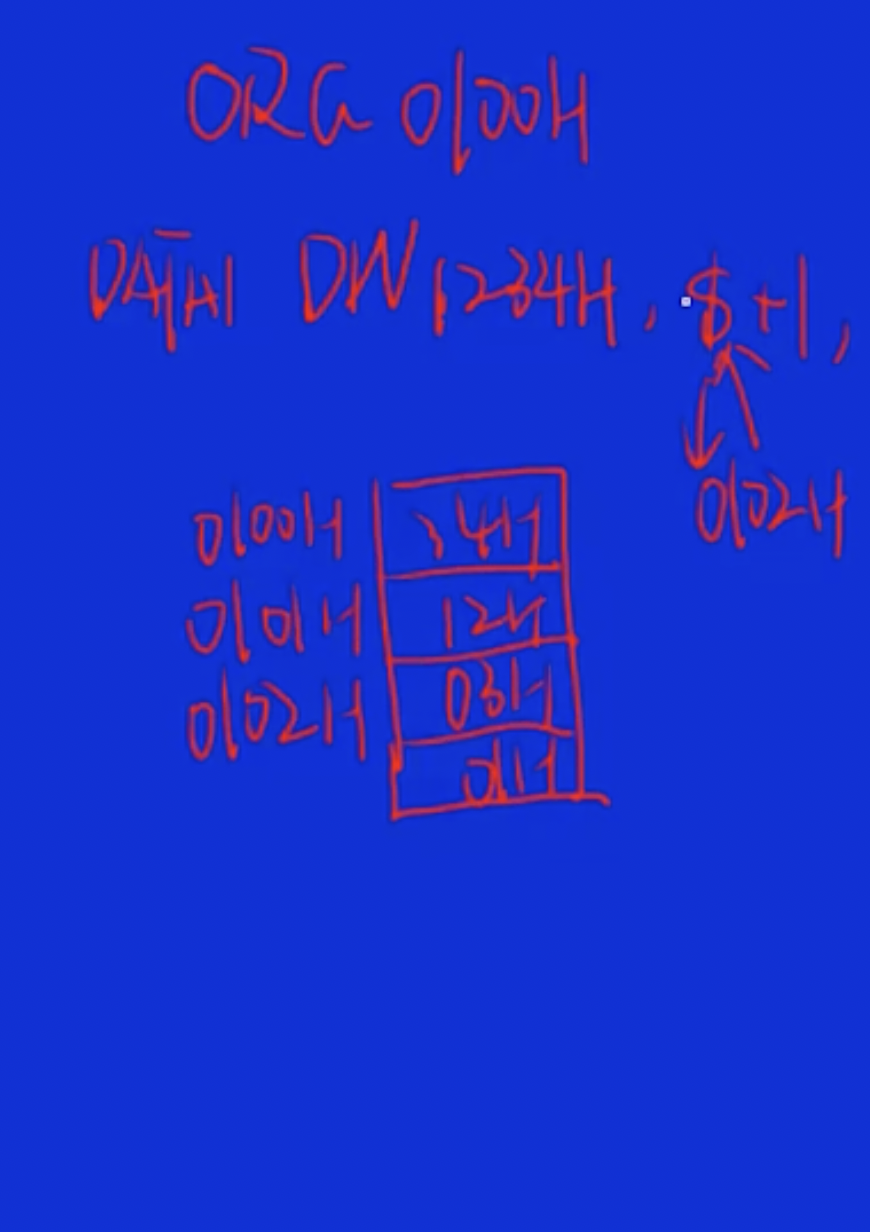 ORG 0100H
DATA1 DW 1234H, $+1,
0102H
0100H 34H
0101H 12H
0102H 03H
01H